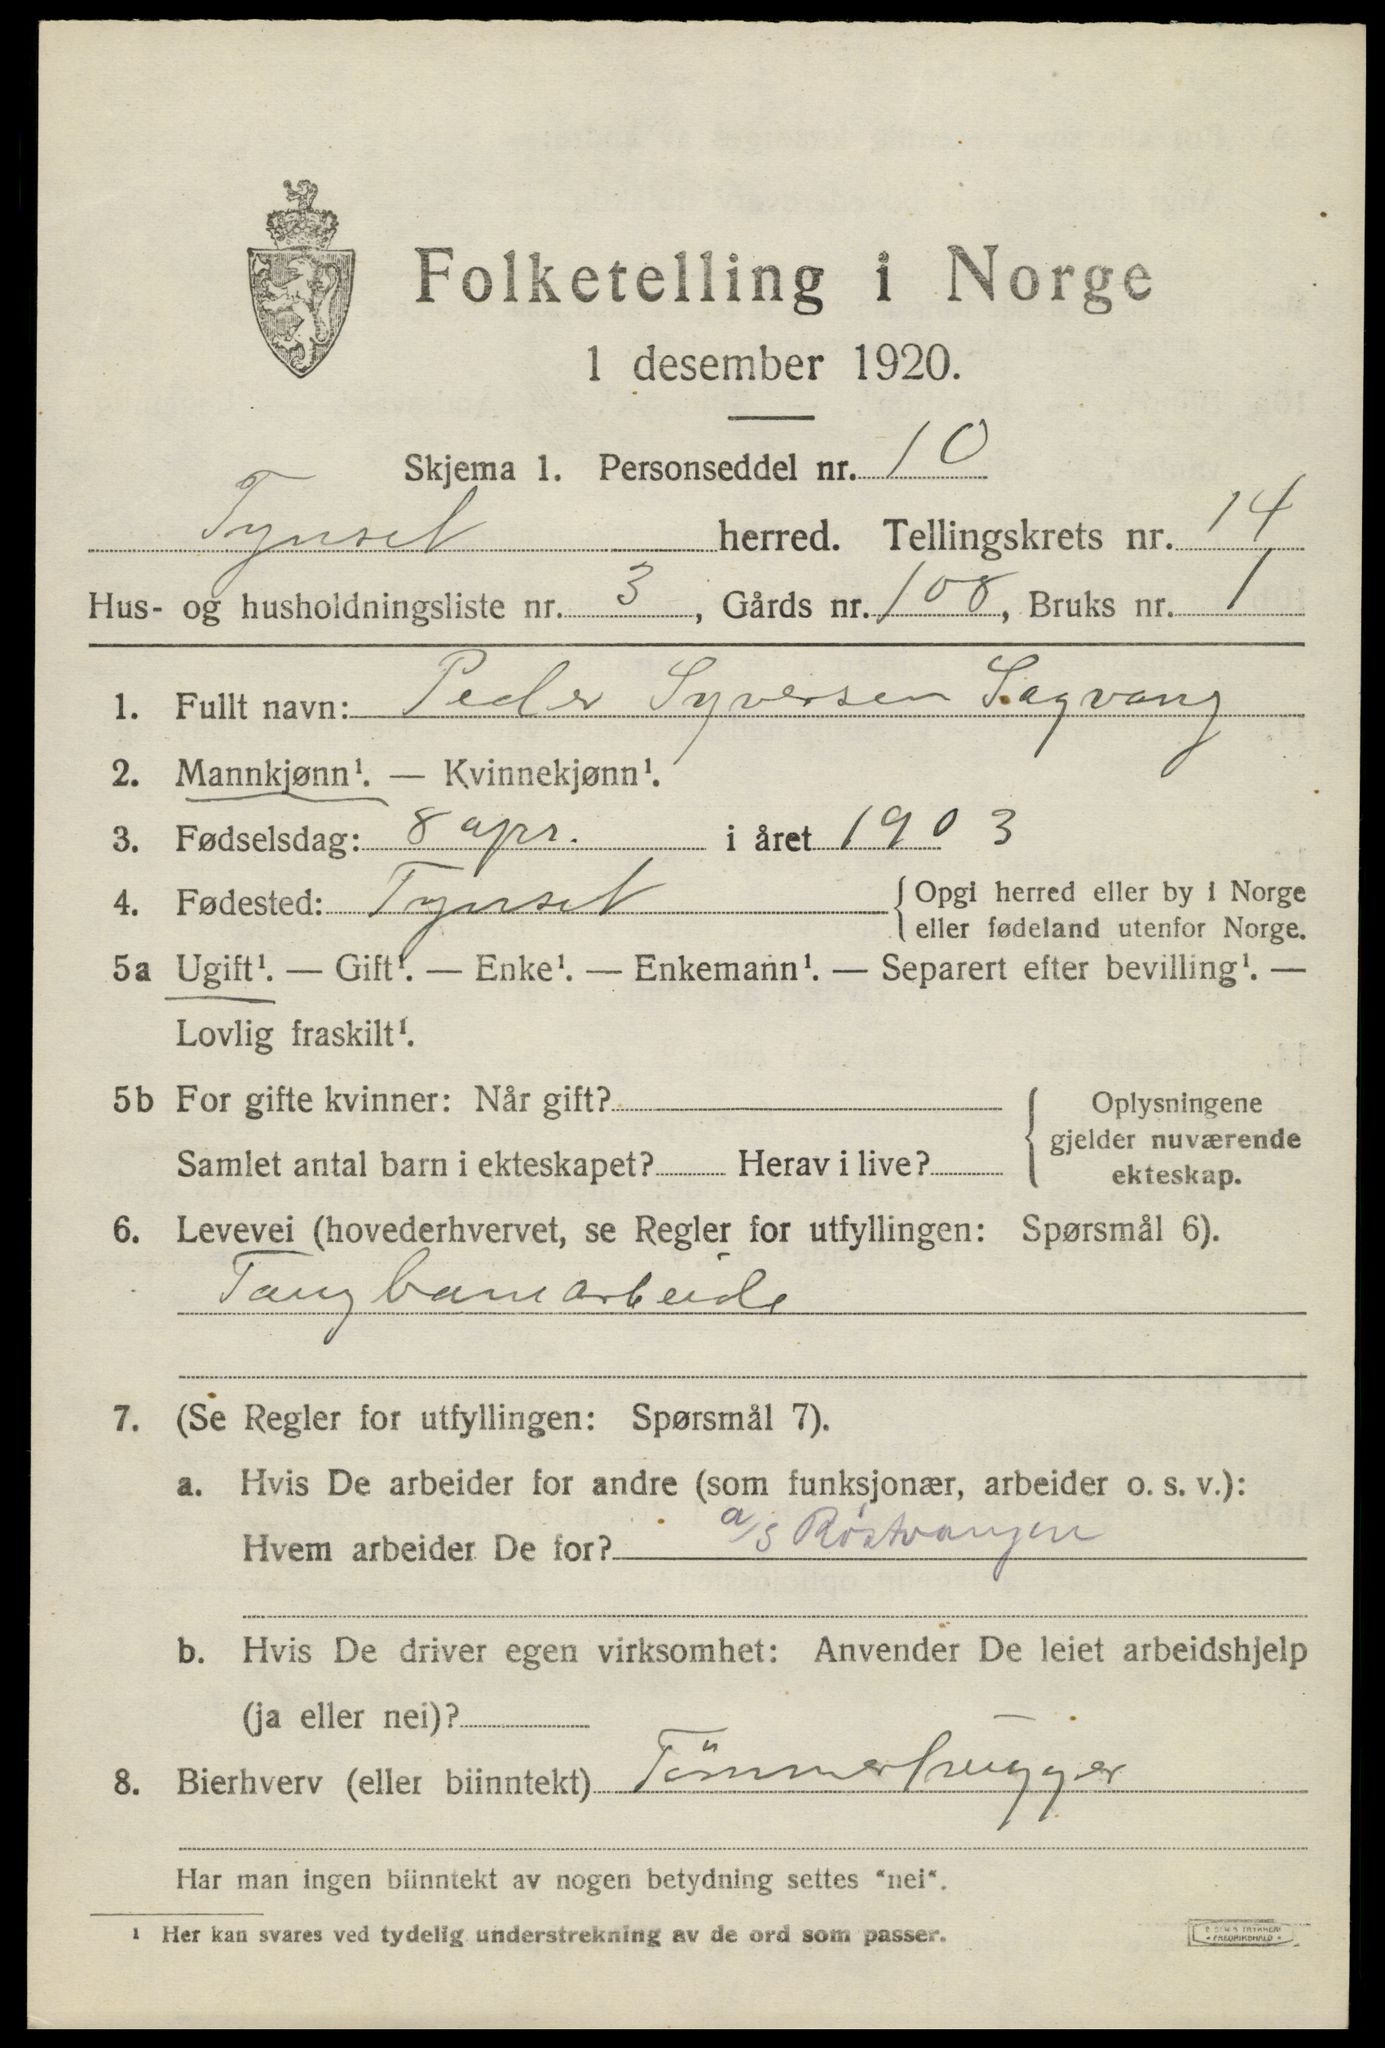 Folketelling i Norge
1 desember 1920.
Skjema 1. Personseddel nr. 10
Tynset herred. Tellingskrets nr. 14
Hus- og husholdningsliste nr. 3, Gårds nr. 108, Bruks nr. 1
1. Fullt navn: Peder Syversen Sagvang
2. Mannkjønn¹. — Kvinnekjønn¹.
3. Fødselsdag: 8 apr. i året 1903
4. Fødested: Tynset { Opgi herred eller by i Norge
eller fødeland utenfor Norge.
5a Ugift¹. — Gift¹. — Enke¹. — Enkemann¹. — Separert efter bevilling¹. —
Lovlig fraskilt¹.
5b For gifte kvinner: Når gift? { Oplysningene
gjelder nuværende
Samlet antal barn i ekteskapet? Herav i live?
ekteskap.
6. Levevei (hovederhvervet, se Regler for utfyllingen: Spørsmål 6).
Taugbanearbeide
7. (Se Regler for utfyllingen: Spørsmål 7).
a. Hvis De arbeider for andre (som funksjonær, arbeider o. s. v.):
Hvem arbeider De for? a/s Røstvangen
b. Hvis De driver egen virksomhet: Anvender De leiet arbeidshjelp
(ja eller nei)?
8. Bierhverv (eller biinntekt) Tömmerhugger
Har man ingen biinntekt av nogen betydning settes "nei".
¹ Her kan svares ved tydelig understrekning av de ord som passer.